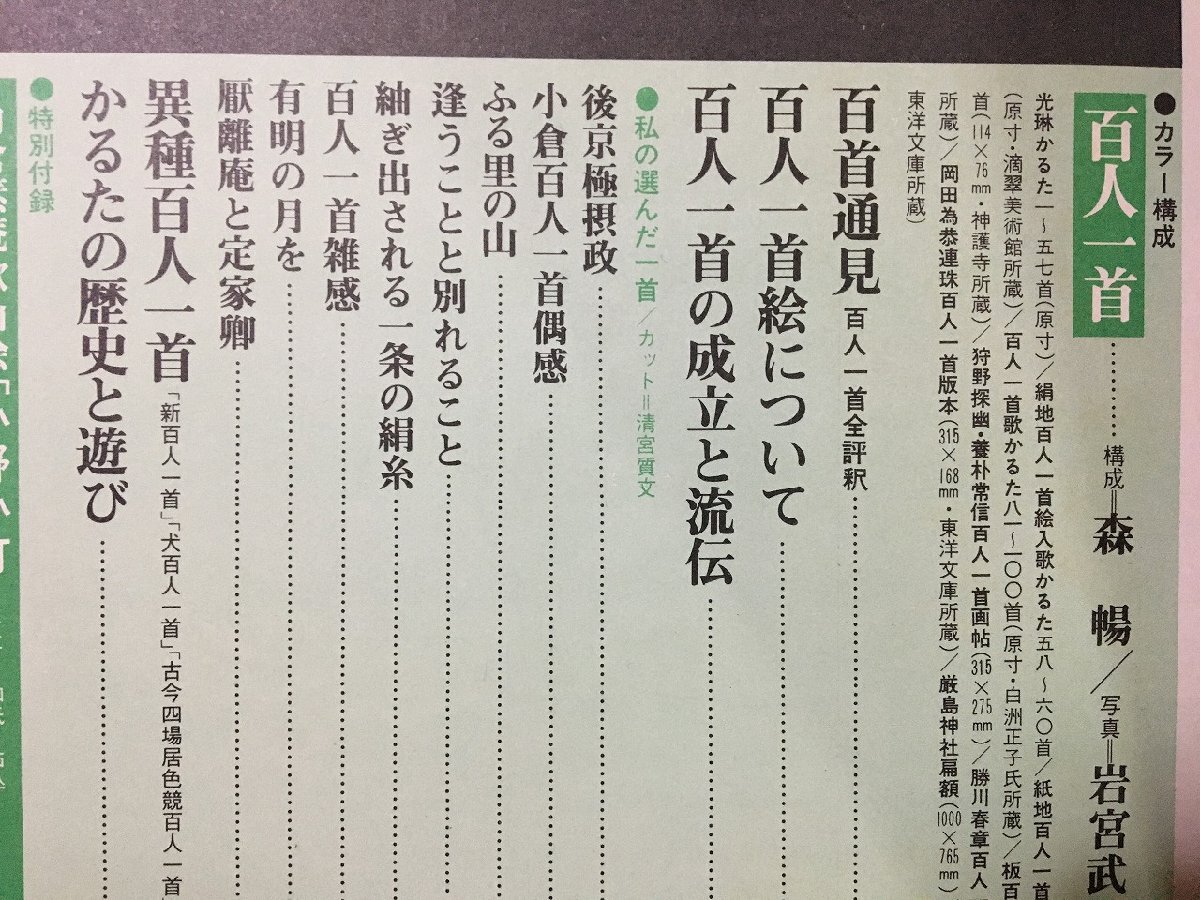 ●カラー構成
百人一首………構成＝森　暢／写真＝岩宮武
光琳かるた一〜五七首(原寸)／絹地百人一首絵入歌かるた五八〜六〇首／紙地百人一首
(原寸・滴翠美術館所蔵)／百人一首歌かるた八一〜一〇〇首(原寸・白洲正子氏所蔵)／板百
首(114×76mm・神護寺所蔵)／狩野探幽・養朴常信百人一首画帖(315×275mm)／勝川春章百人
所蔵)／岡田為恭連珠百人一首版本(315×168mm・東洋文庫所蔵)／厳島神社扁額(1000×765mm)
東洋文庫所蔵)
百首通見 百人一首全評釈………
百人一首絵について………
百人一首の成立と流伝………
●私の選んだ一首／カット＝清宮質文
後京極摂政………
小倉百人一首偶感………
ふる里の山………
逢うことと別れること………
紬ぎ出される一条の絹糸………
百人一首雑感………
有明の月を………
厭離庵と定家卿………
異種百人一首「新百人一首」「犬百人一首」「古今四場居色競百人一首
かるたの歴史と遊び………
●特別付録